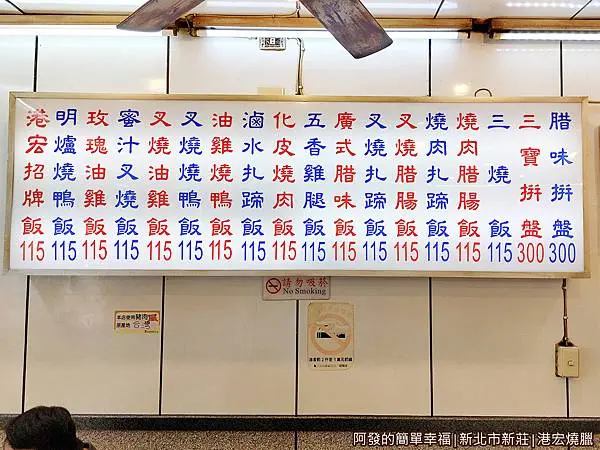 港宏招牌飯 115
明爐燒鴨飯 115
玫瑰油雞飯 115
蜜汁叉燒飯 115
叉燒油雞飯 115
叉燒燒鴨飯 115
油雞燒鴨飯 115
滷水扎蹄飯 115
化皮燒肉飯 115
五香雞腿飯 115
廣式臘味飯 115
叉燒扎蹄飯 115
叉燒臘腸飯 115
燒肉扎蹄飯 115
燒肉臘腸飯 115
三燒飯 115
三寶拼盤 300
臘味拼盤 300
請勿吸菸
No Smoking
本店使用豬肉
原產地 台灣
阿發的簡單幸福|新北市新莊|港宏燒臘